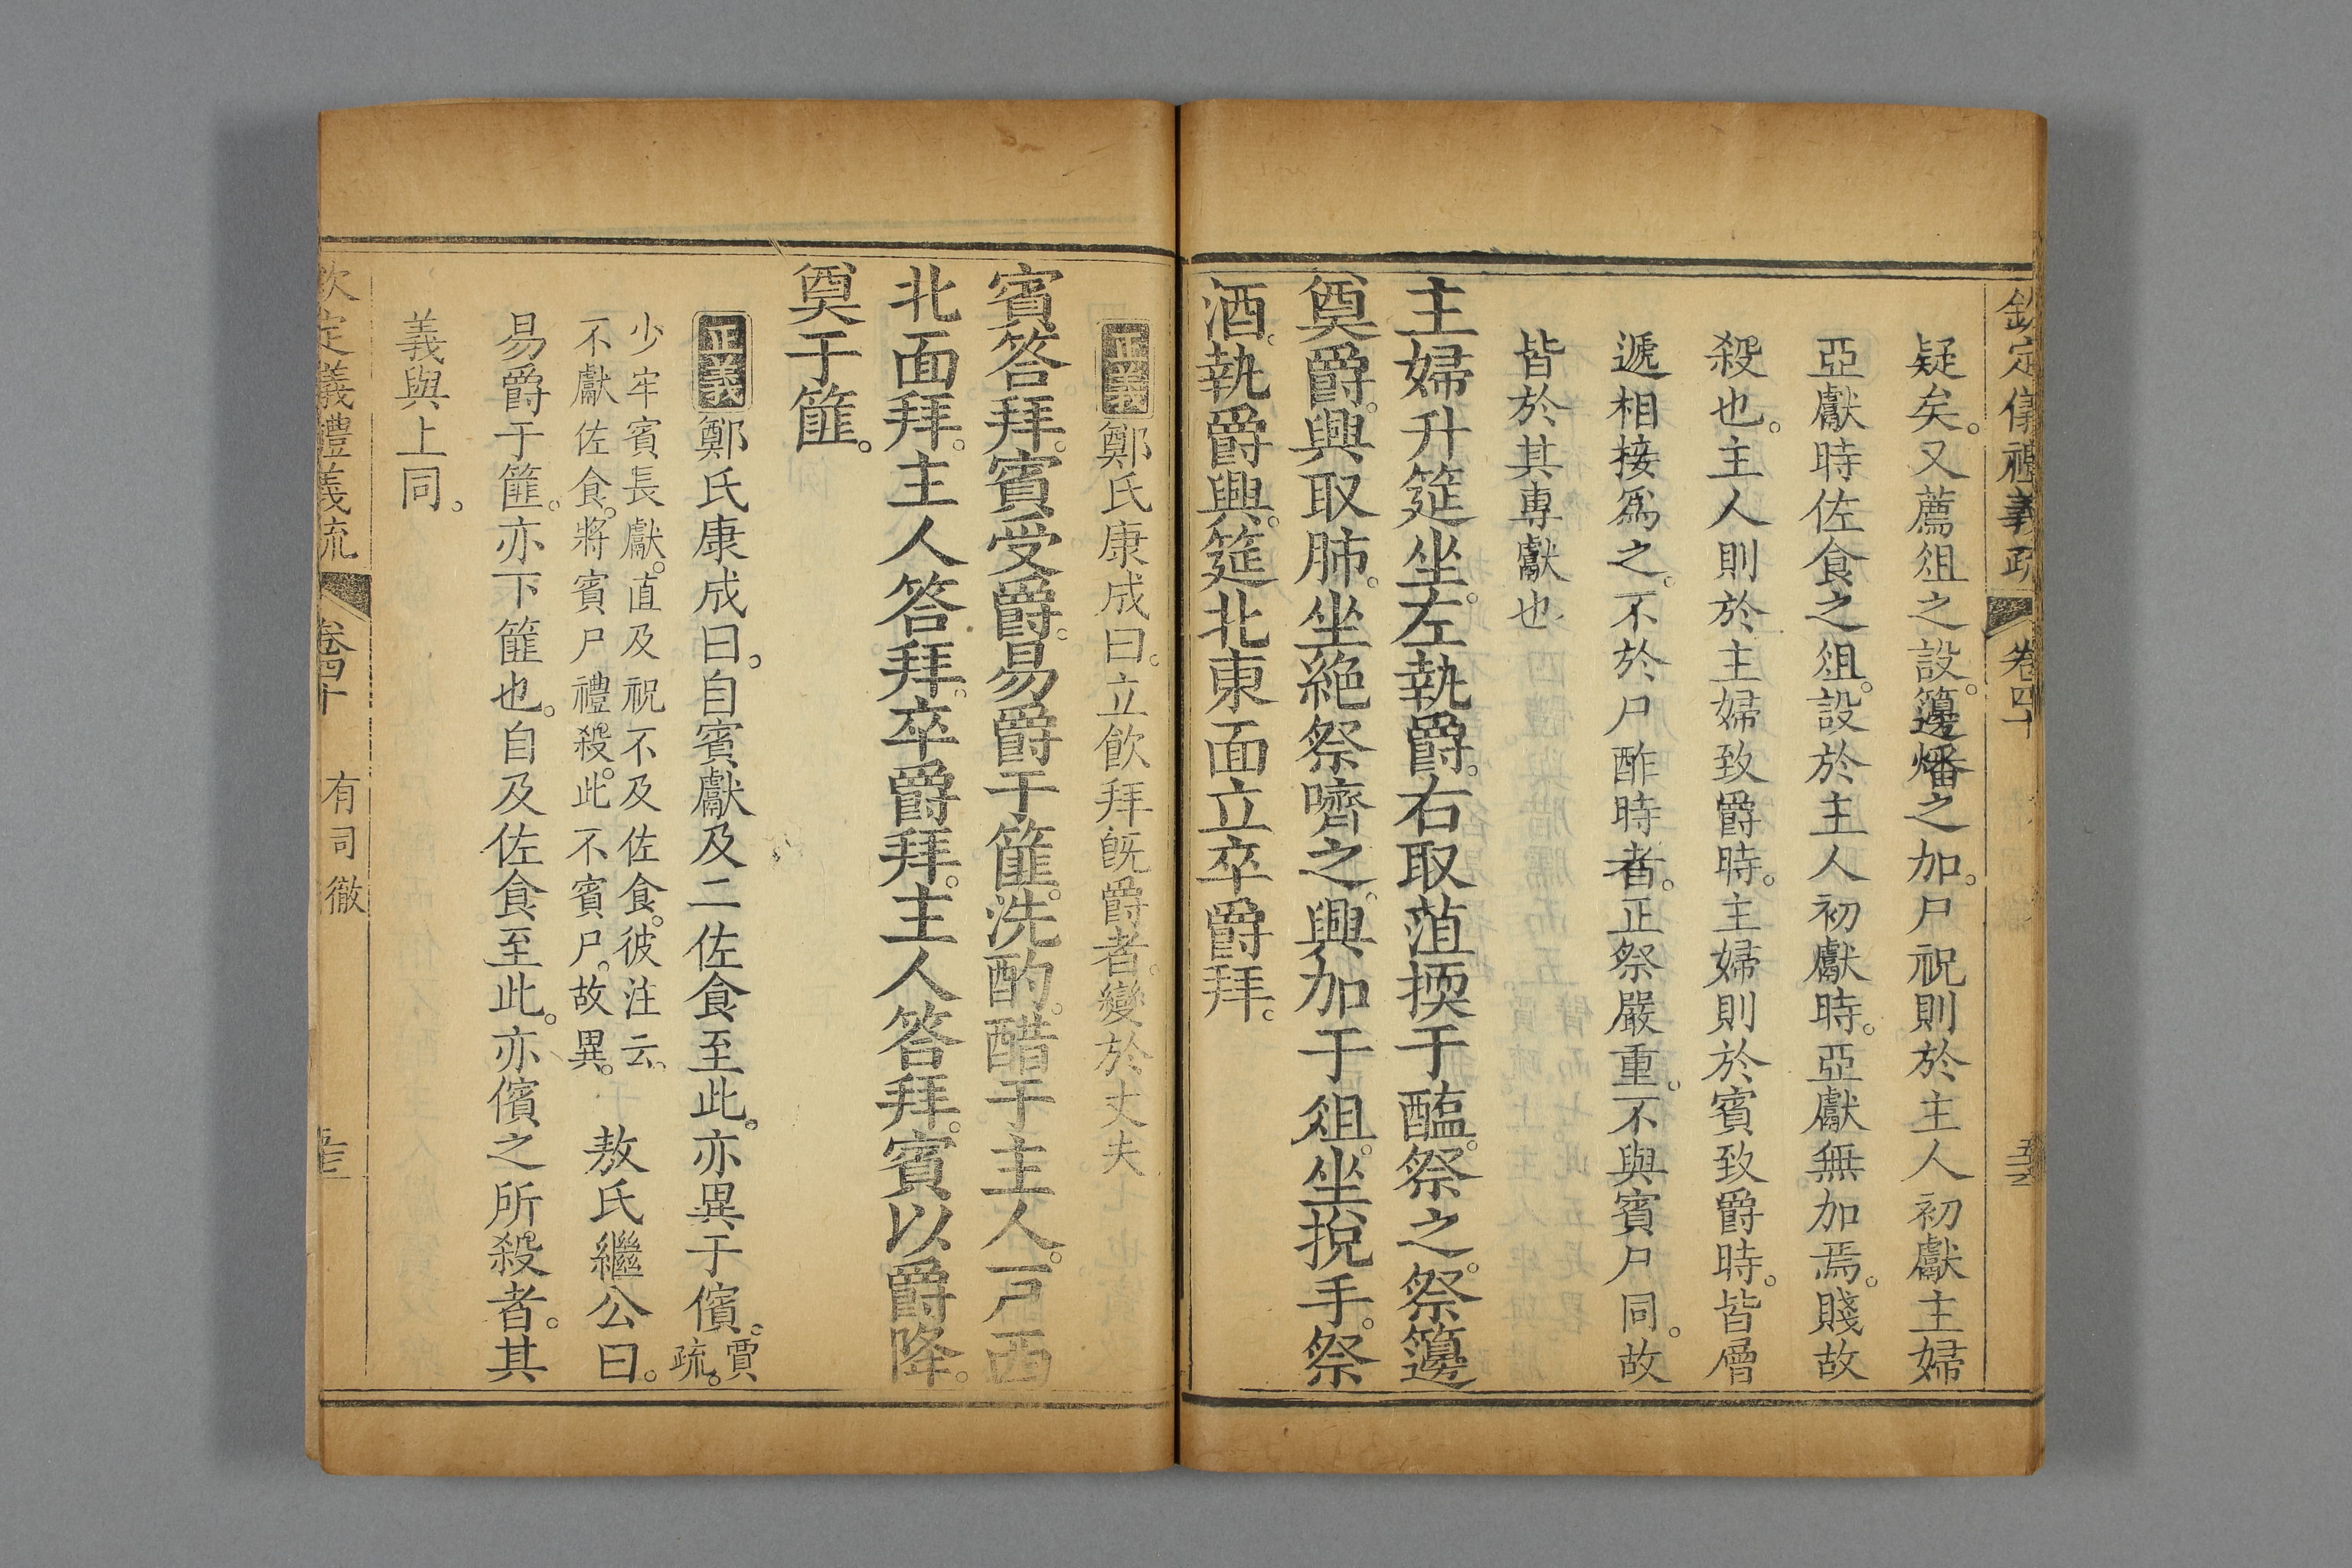 欽定儀禮義疏 卷四十
疑矣。又薦俎之設。籩燔之加。尸祝則於主人初獻主婦
亞獻時佐食之俎。設於主人初獻時。亞獻無加焉。賤故
殺也。主人則於主婦致爵時。主婦則於賓致爵時。皆層
遞相接爲之。不於尸酢時者。正祭嚴重。不與賓尸同。故
皆於其專獻也
主婦升筵坐。左執爵。右取菹㨎于醢。祭之。祭籩
奠爵。興取肺。坐絕祭嚌之。興加于俎。坐挩手。祭
酒。執爵興。筵北東面立卒爵拜。
正義鄭氏康成曰。立飲拜既爵者。變於丈夫
賓答拜。賓受爵。易爵于篚。洗酌。醋于主人。戶西
北面拜。主人答拜。卒爵拜。主人答拜。賓以爵降。
奠于篚。
正義鄭氏康成曰。自賓獻及二佐食至此。亦異于儐。賈疏。
少牢賓長獻。直及祝不及佐食。彼注云。
不獻佐食。將賓尸禮殺。此不賓尸。故異。 敖氏繼公曰。
易爵于篚。亦下篚也。自及佐食至此。亦儐之所殺者。其
義與上同。
欽定儀禮義疏 卷四十 有司徹